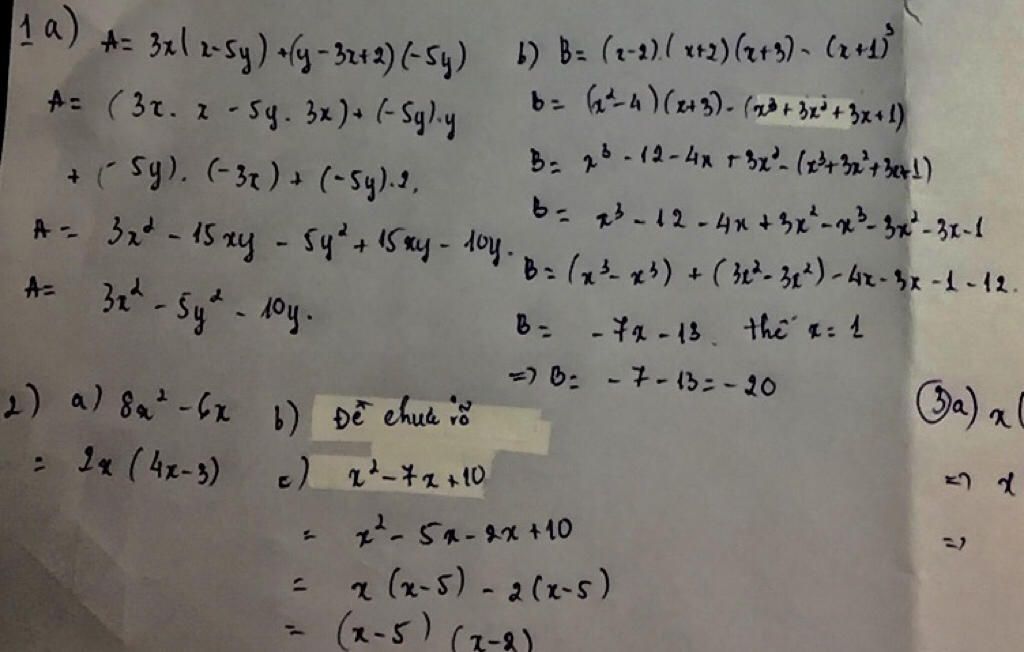 1a)
A = 3x(x-5y) + (y-3x+2)(-5y)
A = (3x. x - 5y. 3x) + (-5y).y
+ (-5y). (-3x) + (-5y).2.
A = 3x² - 15xy - 5y² + 15xy - 10y.
A = 3x² - 5y² - 10y.
b) B = (x-2).(x+2)(x+3) - (x+1)³
B = (x²-4)(x+3) - (x³+3x²+3x+1)
B = x³ - 12 - 4x + 3x² - (x³+3x²+3x+1)
B = x³ - 12 - 4x + 3x² - x³ - 3x² - 3x - 1
B = (x³ - x³) + (3x² - 3x²) - 4x - 3x - 1 - 12.
B = - 7x - 13. thế x = 1
=> B = - 7 - 13 = - 20
2) a) 8x² - 6x
= 2x (4x-3)
b) Đề chưa rõ
c) x² - 7x + 10
= x² - 5x - 2x + 10
= x (x-5) - 2 (x-5)
= (x-5) (x-2)
3a) x (
=> x
=>